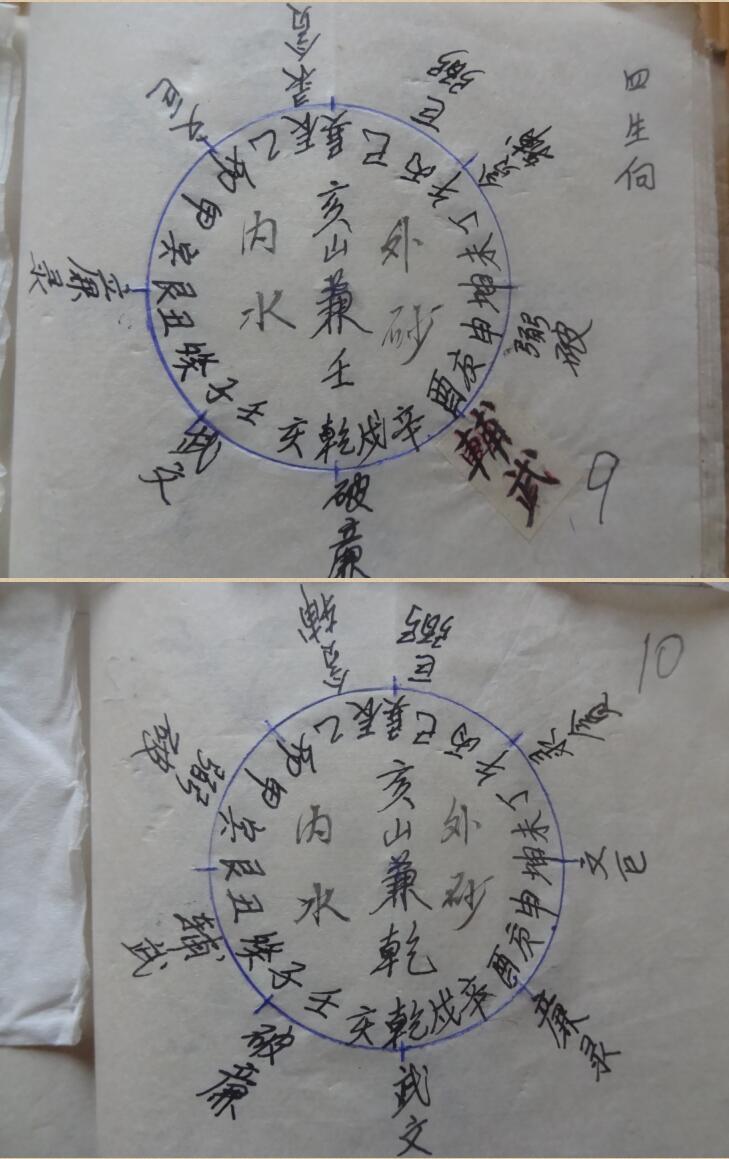 四生向
9
录贪
巨弼
贪辅
文巨
廉录
武文
破廉
輔武
弼破
巽巳丙午丁未坤申庚酉辛戌乾亥壬子癸丑艮寅甲卯乙辰
亥山兼壬
内水
外砂
10
贪辅
巨弼
录贪
文巨
廉录
武文
破廉
辅武
弼破
巽巳丙午丁未坤申庚酉辛戌乾亥壬子癸丑艮寅甲卯乙辰
亥山兼乾
内水
外砂